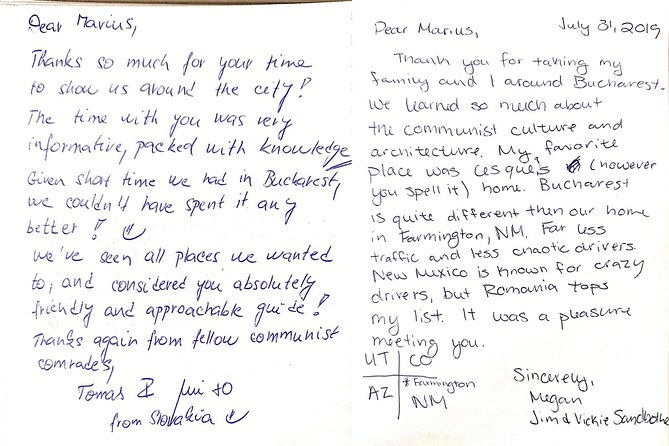 Dear Marius,
Thanks so much for your time
to show us around the city!
The time with you was very
informative, packed with knowledge
Given short time we had in Bucharest,
we couldn't have spent it any
better!
We've seen all places we wanted
to, and considered you absolutely
friendly and approachable guide!
Thanks again from fellow communist
comrades,
Tomas
from Slovakia
Dear Marius, July 31, 2019
Thank you for taking my
family and I around Bucharest.
We learned so much about
the communist culture and
architecture. My favorite
place was (however
you spell it) home. Bucharest
is quite different then our home
in Farmington, NM. Far less
traffic and less chaotic drivers.
New Mexico is known for crazy
drivers, but Romania tops
my list. It was a pleasure
meeting you.
UT CO
AZ *Farmington
NM
Sincerely,
Megan
Jim & Vickie